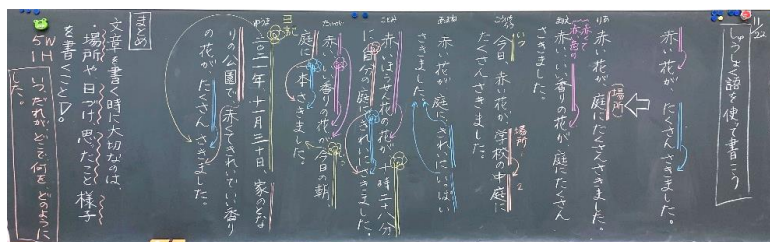 11/22
しゅうしょく語を使って書こう
赤い花が、たくさんさきました。
場所
赤い花が、庭にたくさんさきました。
赤い、いい香りの花が、庭にたくさん
さきました。
いつ
今日、赤い花が、学校の中庭に
たくさんさきました。
場所
赤い花が、庭にきれいに、いっぱい
さきました。
赤いほうせん花の花が、十時二十八分
に、自分の庭にきれいにさきました。
赤い、いい香りの花が、今日の朝、
庭に一本さきました。
二〇二一年、十月三十日、家のとな
りの公園で、赤くてきれいでいい香り
の花が、たくさんさきました。
まとめ
文章を書く時に大切なのは、
・場所や日づけ、思ったこと、様子
を書くこと
5W1H
いつ、だれが、どこで、何を、どのように
した。